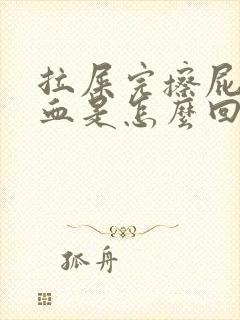 拉屎完擦屁
血是怎麼回
孤舟